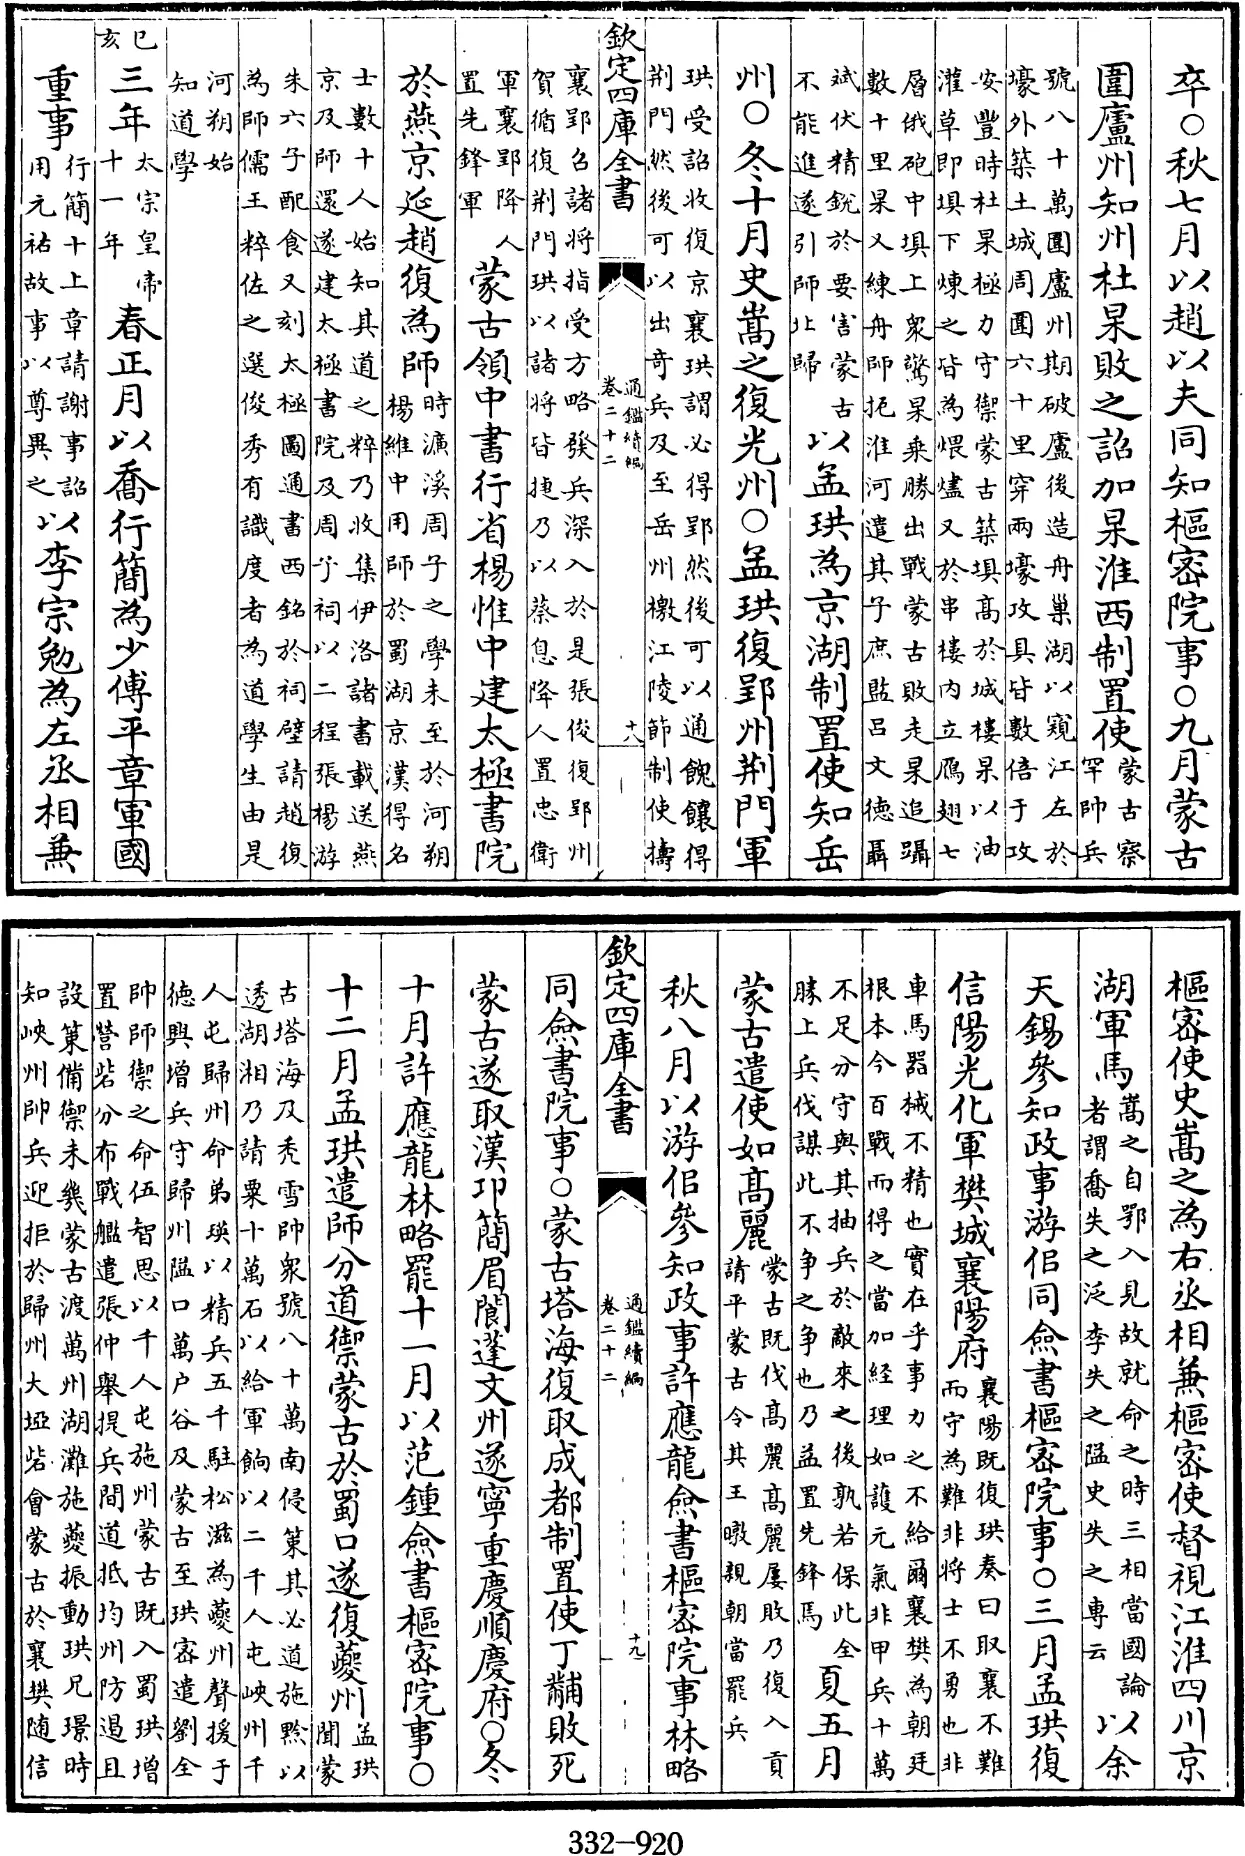 卒○秋七月以趙以夫同知樞密院事○九月蒙古
圍廬州知州杜杲敗之詔加杲淮西制置使蒙古察
罕帥兵
號八十萬圍廬州期破廬後造舟巢湖以窺江左於
壕外築土城周圍六十里穿兩壕攻具皆數倍于攻
安豐時杜杲極力守禦蒙古築填高於城樓杲以油
灌草即填下煉之皆為煨燼又於串樓內立鴈翅七
層俄砲中填上衆驚杲乗勝出戰蒙古敗走杲追躡
數十里杲又練舟師扼淮河遣其子庶監呂文德聶
斌伏精銳於要害蒙古
不能進遂引師北歸以孟珙為京湖制置使知岳
州○冬十月史嵩之復光州○孟珙復郢州荆門軍
珙受詔收復京襄珙謂必得郢然後可以通餽饟得
荆門然後可以出奇兵及至岳州檄江陵節制使擣
欽定四庫全書
通鑑續編
卷二十二
十八
襄郢召諸將指受方略發兵深入於是張俊復郢州
賀循復荆門珙以諸將皆捷乃以蔡息降人置忠衛
軍襄郢降人
置先鋒軍蒙古領中書行省楊惟中建太極書院
於燕京延趙復為師時濂溪周子之學未至於河朔
楊維中用師於蜀湖京漢得名
士數十人始知其道之粹乃收集伊洛諸書載送燕
京及師還遂建太極書院及周子祠以二程張楊游
朱六子配食又刻太極圖通書西銘於祠壁請趙復
為師儒王粹佐之選俊秀有識度者為道學生由是
河朔始
知道學
己亥
三年太宗皇帝
十一年春正月以喬行簡為少傅平章軍國
重事行簡十上章請謝事詔
用元祐故事以尊異之以李宗勉為左丞相兼
樞密使史嵩之為右丞相兼樞密使督視江淮四川京
湖軍馬嵩之自鄂入見故就命之時三相當國論
者謂喬失之泛李失之隘史失之專云以余
天錫參知政事游佀同僉書樞密院事○三月孟珙復
信陽光化軍樊城襄陽府襄陽既復珙奏曰取襄不難
而守為難非將士不勇也非
車馬器械不精也實在乎事力之不給爾襄樊為朝廷
根本今百戰而得之當加経理如護元氣非甲兵十萬
不足分守與其抽兵於敵來之後孰若保此全
勝上兵伐謀此不争之争也乃益置先鋒馬夏五月
蒙古遣使如高麗蒙古既伐高麗高麗屢敗乃復入貢
請平蒙古令其王暾親朝當罷兵
秋八月以游佀參知政事許應龍僉書樞密院事林略
欽定四庫全書
通鑑續編
卷二十二
十九
同僉書院事○蒙古塔海復取成都制置使丁黼敗死
蒙古遂取漢卭簡眉閬蓬文州遂寧重慶順慶府○冬
十月許應龍林略罷十一月以范鍾僉書樞密院事○
十二月孟珙遣師分道禦蒙古於蜀口遂復夔州孟珙
聞蒙
古塔海及秃雪帥衆號八十萬南侵策其必道施黔以
透湖湘乃請粟十萬石以給軍餉以二千人屯峽州千
人屯歸州命弟瑛以精兵五千駐松滋為夔州聲援于
德興增兵守歸州隘口萬户谷及蒙古至珙宻遣劉全
帥師禦之命伍智思以千人屯施州蒙古既入蜀珙增
置營砦分布戰艦遣張仲舉提兵間道抵均州防遏且
設策備禦未幾蒙古渡萬州湖灘施夔振動珙兄璟時
知峽州帥兵迎拒於歸州大埡砦會蒙古於襄樊随信
332-920